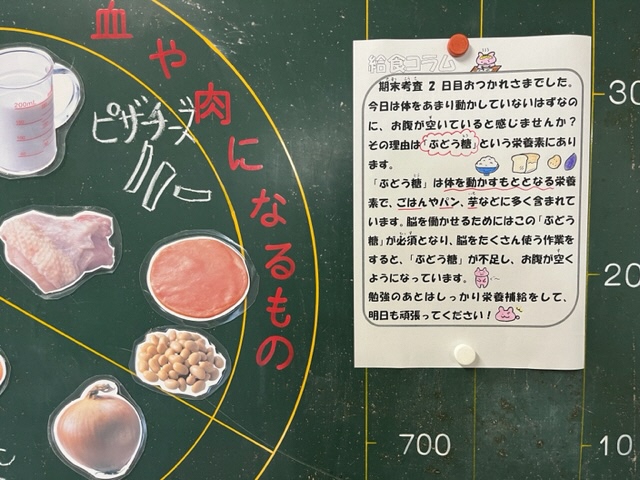 血や肉になるもの
ピザチーズ
200mL
給食コラム
期末考査２日目おつかれさまでした。
今日は体をあまり動かしていないはずなの
に、お腹が空いていると感じませんか？
その理由は「ぶどう糖」という栄養素にあり
ます。
「ぶどう糖」は体を動かすもととなる栄養
素で、ごはんやパン、芋などに多く含まれて
います。脳を働かせるためにはこの「ぶどう
糖」が必須となり、脳をたくさん使う作業を
すると、「ぶどう糖」が不足し、お腹が空く
ようになっています。
勉強のあとはしっかり栄養補給をして、
明日も頑張ってください！
30
20
700
10